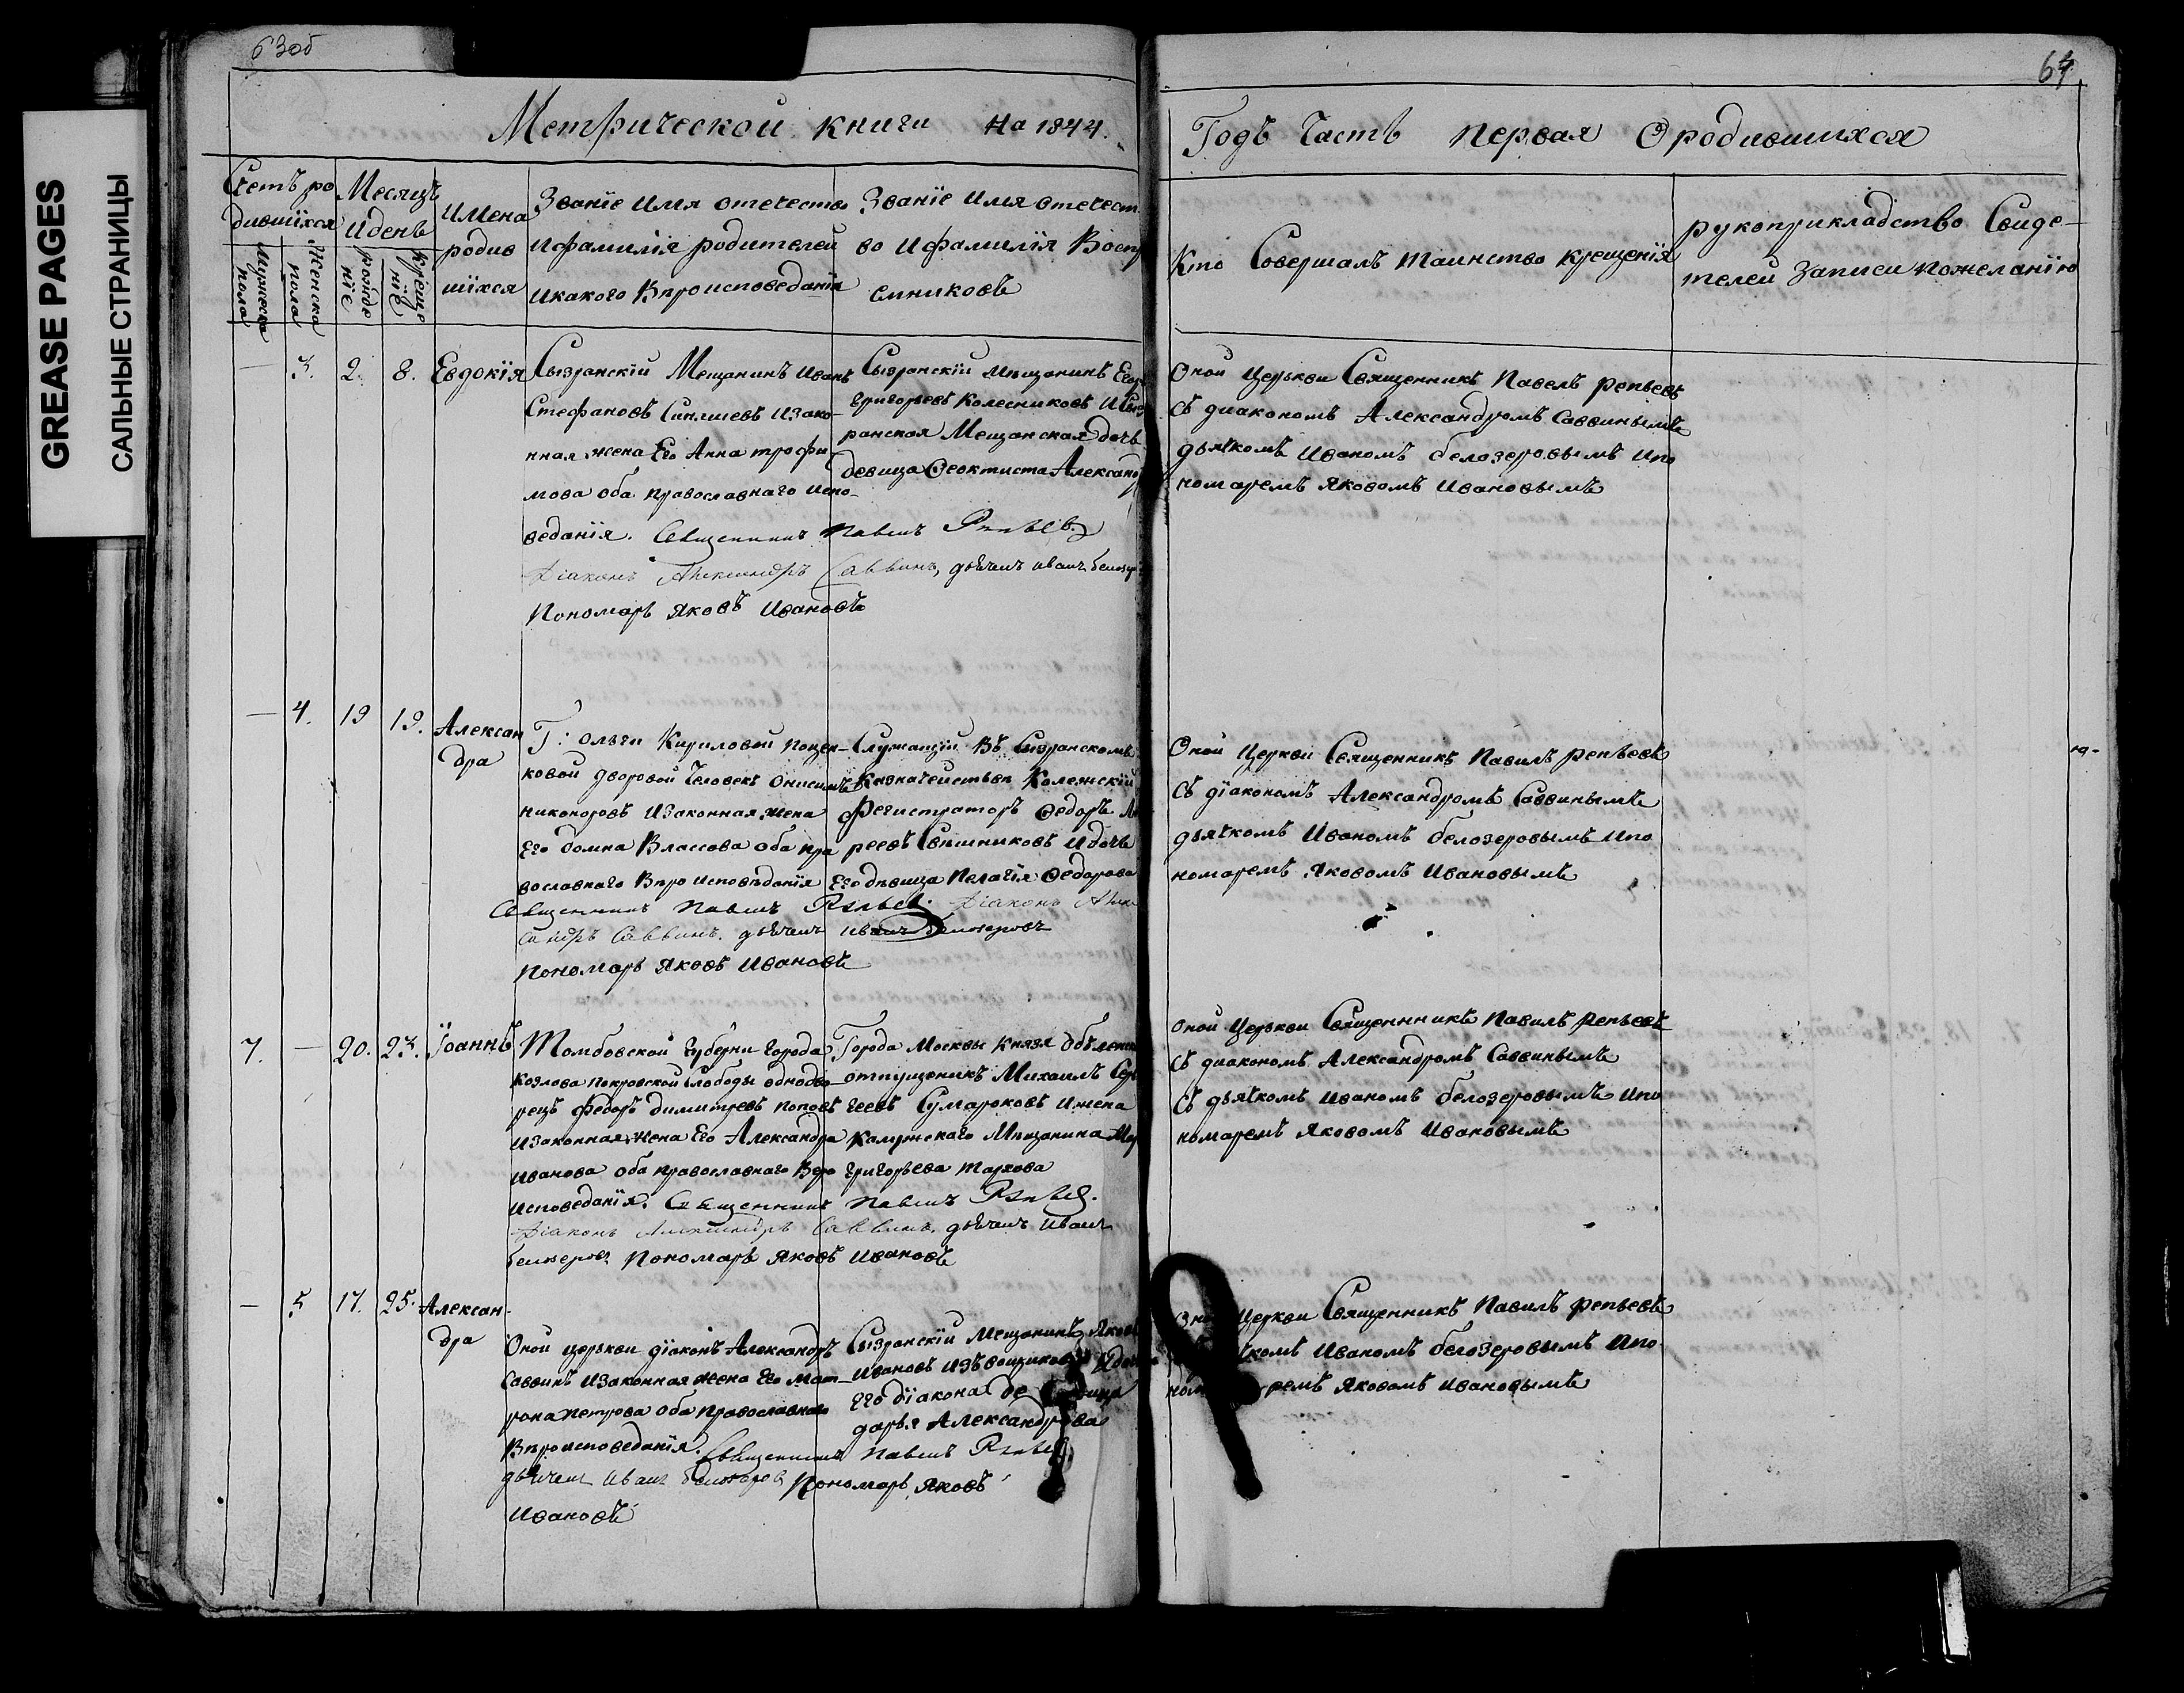 63об
64
GREASE PAGES
САЛЬНЫЕ СТРАНИЦЫ
Метрической книги на 1844.
Годъ Часть первая О родившихся
Счетъ ро
дившихся
Мужеска
пола
Женска
пола
Месяцъ
и день
рожде
нїе
креще
нїе
Имена
родив
шихся
Званїе имя отечество
и фамилїя родителей
и какого Вѣроисповеданїя
Званїе имя отечест
во и фамилїя Восп
емниковъ
Кто Совершалъ таинство крещенїя
рукоприкладство Свиде-
телей записи по желанїю
— 3. 2. 8. Евдокїя
Сызранскїй Мещанинъ Иванъ
Стефановъ Синишевъ и зако-
нная жена Его Анна трофи
мова оба православнаго испо-
веданїя. Священникъ Павелъ Репьев
Дїаконъ Александръ Саввинъ, дьячекъ иванъ белозер
Пономарь Яковъ Ивановъ
Сызранскїй мещанинъ Его
григорьевъ Колесниковъ и Сыз
ранская Мещанская дочь
девица Феоктиста Александр
Оной Церькви Священникъ Павелъ репьевъ
Съ диакономъ Александромъ Саввинымъ
дьячкомъ Иваномъ белозеровымъ и по
номаремъ Яковомъ Ивановымъ
— 4. 19 19. Алексан
дра
Г: Ольги Кириловой
ковой дворовой Человекъ Онисимъ
никоноровъ и законная жена
Его домна Власова оба пра
вославнаго Вѣро исповѣданїя
Священникъ Павелъ Репьев. Дїаконъ Алек
сандръ Саввинъ. дьячекъ иванъ белозеровъ
Пономарь Яковъ Ивановъ
Служащїй Въ Сызранскомъ
Казначействѣ Колежскїй
регистраторъ Федоръ Ан
реевъ Свешниковъ и дочь
Его дѣвица Пелагїя Федорова
Оной Церкви Священникъ Павилъ репьевъ
Съ дїакономъ Александромъ Саввинымъ
дьячкомъ Иваномъ белозеровымъ и по
номаремъ Яковомъ Ивановымъ
7. — 20. 23. Їоаннъ
Томбовской губерни города
Козлова Покровской Слободы однодво
рецъ федоръ димитревъ поповъ
и законная жена Его Александра
иванова оба православнаго Веро
исповеданїя. Священникъ Павелъ Репьев.
Дїаконъ Александръ Саввинъ. дьячекъ иванъ
белозеровъ Пономарь Яковъ Ивановъ
Города Москвы Князя Оболенск
отпущеникъ Михаилъ Сер
геевъ Сумароковъ и жена
Калужскаго Мещанина Мар
григорьева таркова
Оной Церькви Священникъ Павилъ репьевъ
Съ диакономъ Александромъ Саввинымъ
Съ дьячкомъ иваномъ белозеровымъ и по
номаремъ Яковомъ Ивановымъ
— 5 17. 25. Алексан-
дра
Оной церькви дїаконъ Александръ
Саввинъ и законная жена Его мат-
рона петрова оба православнаго
Вѣроисповеданїя. Священникъ Павелъ Репьев
дьячекъ Иванъ белозеров Пономарь Яковъ
Ивановъ
Сызранскїй мещанинъ Яков
Ивановъ Извощиковъ и дочь
Его дїакона
дарья Александрова
Оной Церкви Священникъ Павилъ репьевъ
Иваномъ белозеровымъ и по
номаремъ Яковомъ Ивановымъ